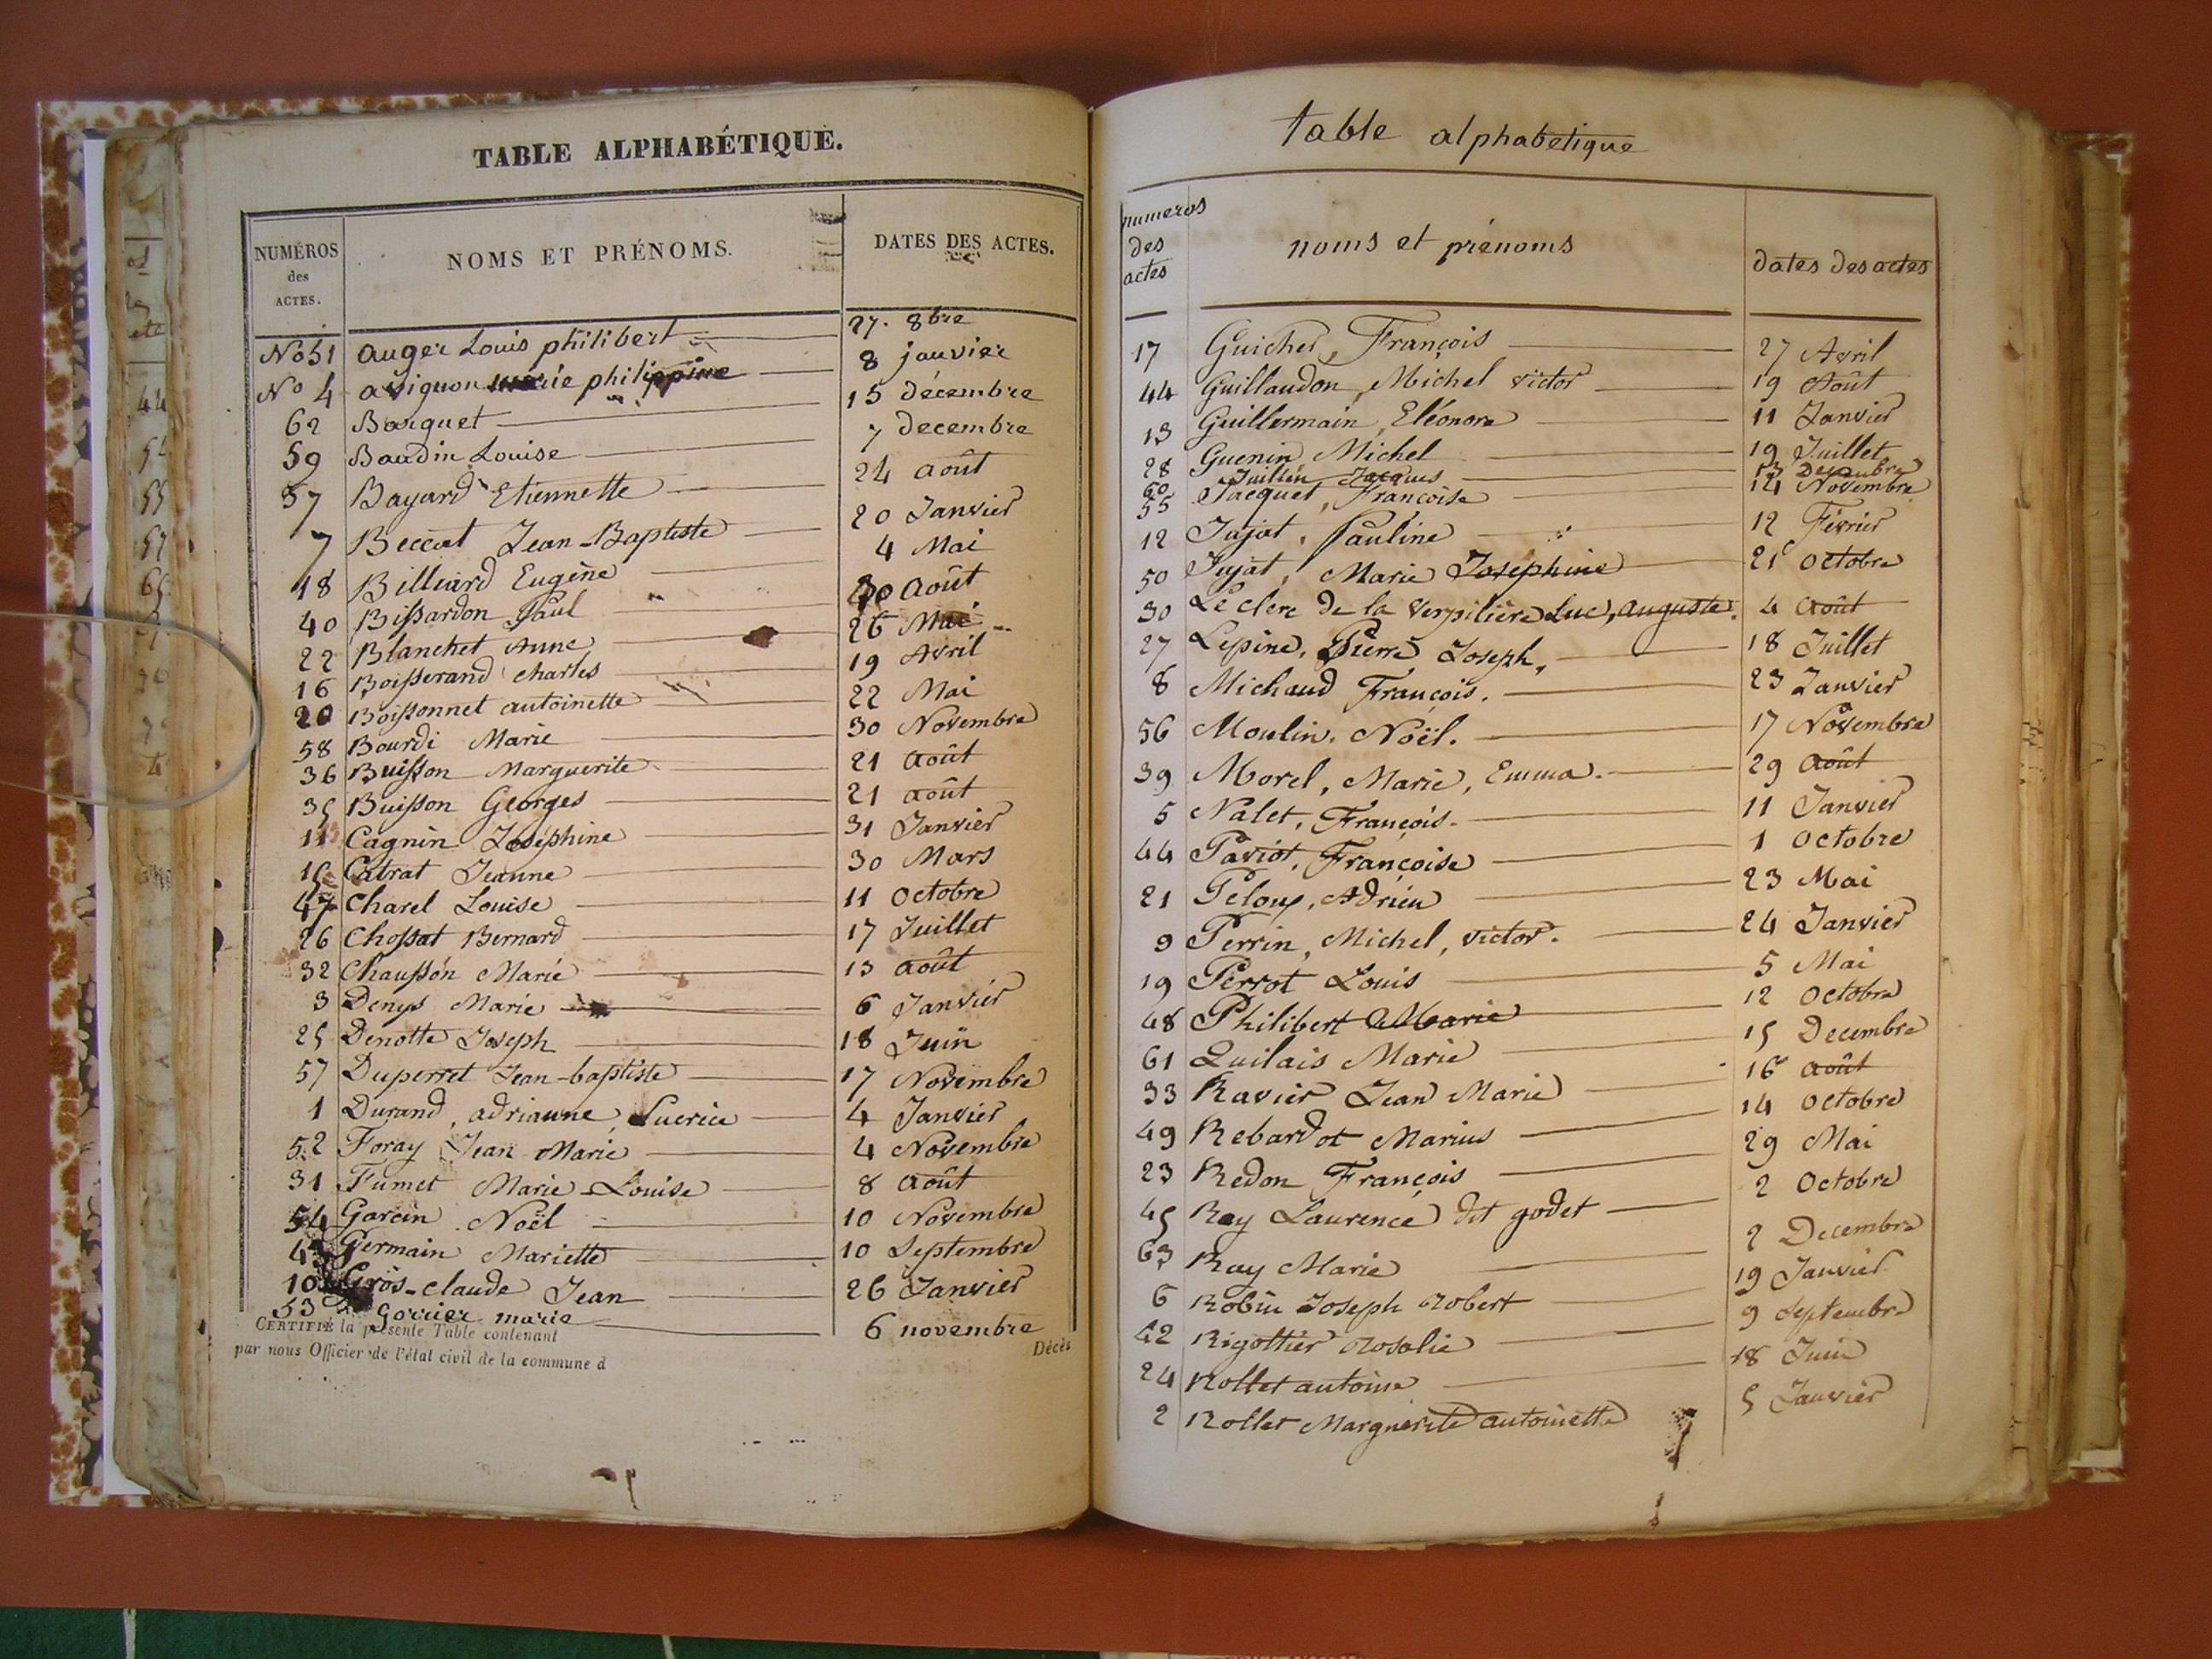 TABLE ALPHABÉTIQUE.
NUMÉROS des ACTES. NOMS ET PRÉNOMS. DATES DES ACTES.
No 51 auger Louis philibert 27. 8bre
No 4 avignon marie philippine 8 janvier
62 Barquet 15 décembre
59 Baudin Louise 7 decembre
37 Bayard Etiennette 24 août
7 Beccat Jean-Baptiste 20 Janvier
18 Billiard Eugène 4 Mai
40 Bissardon Paul 30 Août
22 Blanchet Anne 26 Mai
16 Boisserand Charles 19 Avril
20 Boissonnet antoinette 22 Mai
58 Bourdi Marie 30 Novembre
36 Buisson Marguerite 21 août
35 Buisson Georges 21 août
11 Cagnin Joséphine 31 Janvier
15 Catrat Jeanne 30 Mars
47 Charel Louise 11 Octobre
26 Chossat Bernard 17 Juillet
32 Chausson Marie 13 août
3 Denys Marie 6 Janvier
25 Denotte Joseph 18 Juin
57 Duperret Jean-baptiste 17 Novembre
1 Durand, adrianne, Lucrèce 4 Janvier
52 Foray Jean Marie 4 Novembre
31 Fumet Marie-Louise 8 août
54 Garcin Noël 10 Novembre
43 Germain Mariette 10 Septembre
10 Gros-claude Jean 26 Janvier
53 Gorrier marie 6 novembre
CERTIFIÉ la présente Table contenant Décès
par nous Officier de l'état civil de la commune d
table alphabetique
numeros des actes noms et prénoms dates des actes
17 Guicher, François 27 Avril
44 Guillaudon, Michel victor 19 Août
13 Guillermain, Eléonore 11 Janvier
28 Guenin Michel 19 Juillet
60 Juillen Jacques 13 Decembre
55 Jacquet, Françoise 14 Novembre
12 Jajat, Pauline 12 Février
50 Jujat, Marie Joséphine 21 octobre
30 Le clerc de la Verpilière Luc, auguste. 4 août
27 Lepine, Pierre Joseph, 18 Juillet
8 Michaud François. 23 Janvier
56 Moulin. Noël. 17 Novembre
39 Morel, Marie, Emma. 29 août
5 Nalet, François. 11 Janvier
44 Paviot, Françoise 1 octobre
21 Peloux, Adrien 23 Mai
9 Perrin, Michel, victor. 24 Janvier
19 Perrot Louis 5 Mai
48 Philibert Marie 12 octobre
61 Quilais Marie 15 Decembre
33 Ravier Jean Marie 16 août
49 Rebardot Marius 14 octobre
23 Redon François 29 Mai
45 Rey Laurence dit godet 2 Octobre
63 Ray Marie 2 Decembre
6 Robin Joseph Robert 19 Janvier
42 Rigottier Rosalie 9 Septembre
24 Rollet antoine 18 Juin
2 Rollet Marguerite antoinette 5 Janvier